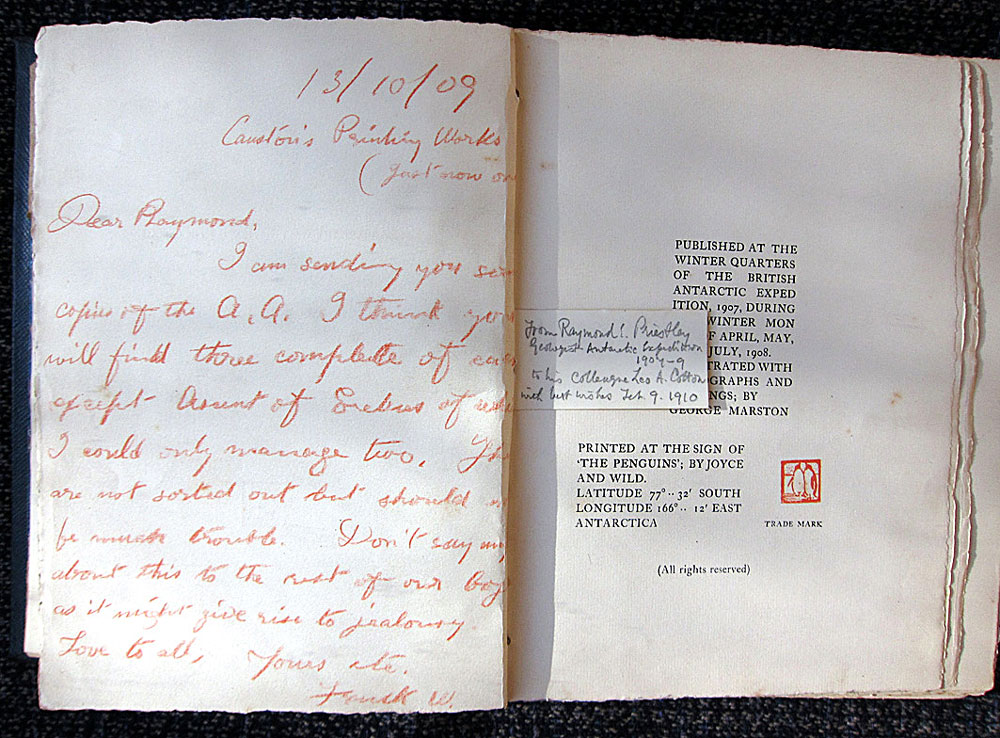 13/10/09
Causton's Printing Works
(Just now on
Dear Raymond,
I am sending you
copies of the A.A. I think you
will find three complete of
except Ascent of Erebus of
I could only manage two.
are not sorted out but should
be much trouble. Don't say
about this to the rest of our boy
as it might give rise to jealousy.
Love to all, Yours etc.
Frank W.
From Raymond E. Priestley
Geologist Antarctic Expedition
1907-9
to his colleague Leo A. Cotton
with best wishes Feb 9. 1910
PUBLISHED AT THE
WINTER QUARTERS
OF THE BRITISH
ANTARCTIC EXPED
ITION, 1907, DURING
WINTER MON
OF APRIL, MAY,
JULY, 1908.
TRATED WITH
OGRAPHS AND
NGS; BY
GEORGE MARSTON
PRINTED AT THE SIGN OF
'THE PENGUINS'; BY JOYCE
AND WILD.
LATITUDE 77° ·· 32' SOUTH
LONGITUDE 166° ·· 12' EAST
ANTARCTICA
TRADE MARK
(All rights reserved)